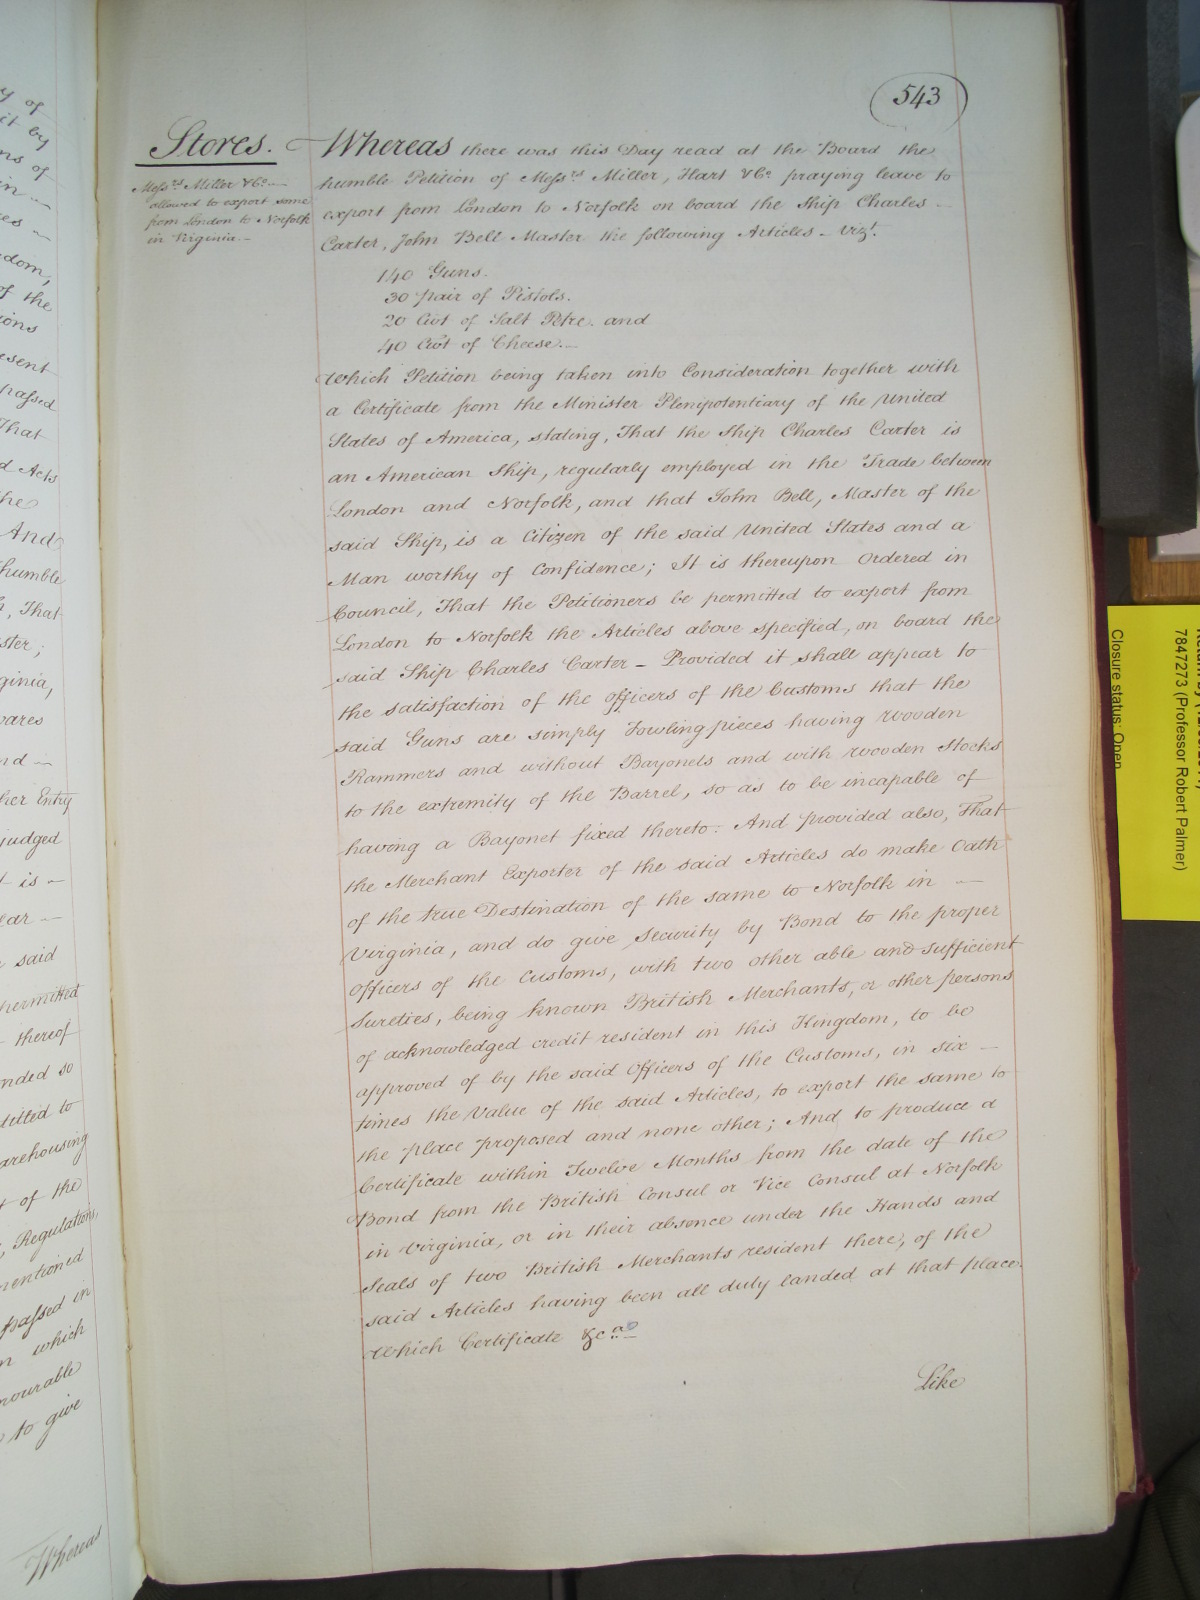 543
Stores.
Messrs Miller &Co.—
allowed to export some
from London to Norfolk
in Virginia.—
Whereas there was this Day read at the Board the
humble Petition of Messrs Miller, Hart &Co. praying leave to
export from London to Norfolk on board the Ship Charles —
Carter, John Bell Master the following Articles — Vizt.
140 Guns.
30 pair of Pistols.
20 Cwt of Salt Petre. and
40 Cwt of Cheese.—
Which Petition being taken into Consideration together with
a Certificate from the Minister Plenipotentiary of the United
States of America, stating, That the Ship Charles Carter is
an American Ship, regularly employed in the Trade between
London and Norfolk, and that John Bell, Master of the
said Ship, is a Citizen of the said United States and a
Man worthy of Confidence; It is thereupon Ordered in
Council, That the Petitioners be permitted to export from
London to Norfolk the Articles above specified, on board the
said Ship Charles Carter — Provided it shall appear to
the satisfaction of the Officers of the Customs that the
said Guns are simply Fowling pieces having wooden
Rammers and without Bayonets and with wooden Stocks
to the extremity of the Barrel, so as to be incapable of
having a Bayonet fixed thereto: And provided also, That
the Merchant Exporter of the said Articles do make Oath
of the true Destination of the same to Norfolk in —
Virginia, and do give Security by Bond to the proper
Officers of the Customs, with two other able and sufficient
Sureties, being known British Merchants, or other persons
of acknowledged credit resident in this Kingdom, to be
approved of by the said Officers of the Customs, in six —
times the Value of the said Articles, to export the same to
the place proposed and none other; And to produce a
Certificate within Twelve Months from the date of the
Bond from the British Consul or Vice Consul at Norfolk
in Virginia, or in their absence under the Hands and
Seals of two British Merchants resident there, of the
said Articles having been all duly landed at that place.
Which Certificate &ca.
Like
y of
it by
ns of
in —
es —
dom,
of the
ions
esent
passed
That
d Acts
the
And
humble
, That
ster;
ginia,
wares
nd —
her Entry
judged
t is —
ear —
said
permitted
thereof
nded so
itted to
arehousing
t of the
, Regulations,
mentioned
passed in
n which
nourable
to give
Whereas
7847273 (Professor Robert Palmer)
Closure status: Open